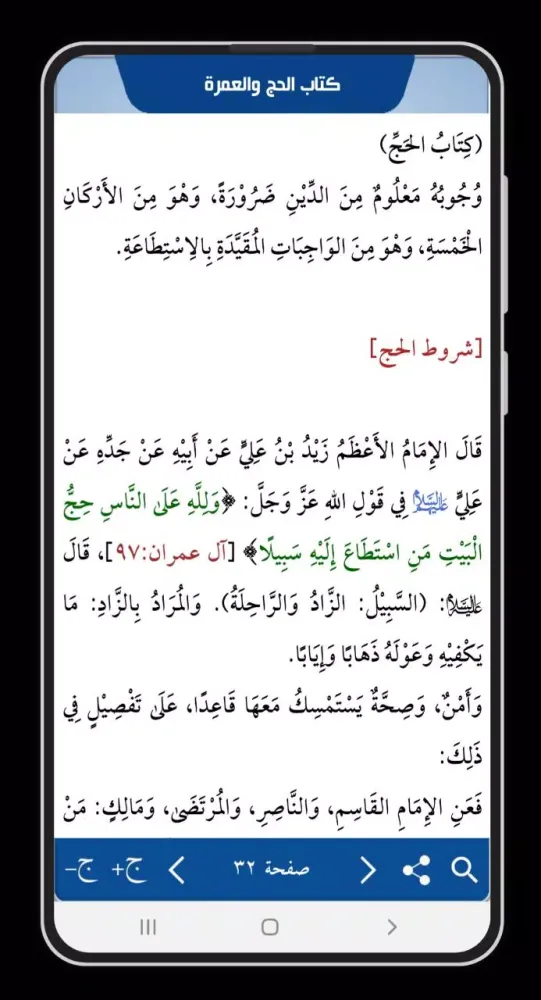 كتاب الحج والعمرة
(كِتَابُ الحَجِّ)
وُجُوبُهُ مَعْلُومٌ مِنَ الدِّيْنِ ضَرُوْرَةً، وَهْوَ مِنَ الأَرْكَانِ
الْخَمْسَةِ، وَهْوَ مِنَ الوَاجِبَاتِ المُقَيَّدَةِ بِالِاسْتِطَاعَةِ.
[شروط الحج]
قَالَ الإِمَامُ الأَعْظَمُ زَيْدُ بْنُ عَلِيٍّ عَنْ أَبِيْهِ عَنْ جَدِّهِ عَنْ
عَلِيٍّ عَلَيْهِ السَّلَامُ فِي قَوْلِ اللهِ عَزَّ وَجَلَّ: ﴿وَلِلَّهِ عَلَى النَّاسِ حِجُّ
الْبَيْتِ مَنِ اسْتَطَاعَ إِلَيْهِ سَبِيلًا﴾ [آل عمران:٩٧]، قَالَ
عَلَيْهِ السَّلَامُ: (السَّبِيْلُ: الزَّادُ وَالرَّاحِلَةُ). وَالمُرَادُ بِالزَّادِ: مَا
يَكْفِيْهِ وَعَوْلَهُ ذَهَابًا وَإِيَابًا.
وَأَمْنٌ، وَصِحَّةٌ يَسْتَمْسِكُ مَعَهَا قَاعِدًا، عَلَى تَفْصِيْلٍ فِي
ذَلِكَ:
فَعَنِ الإِمَامِ القَاسِمِ، وَالنَّاصِرِ، وَالمُرْتَضَى، وَمَالِكٍ: مَنْ
صفحة ٣٢ ج+ ج-